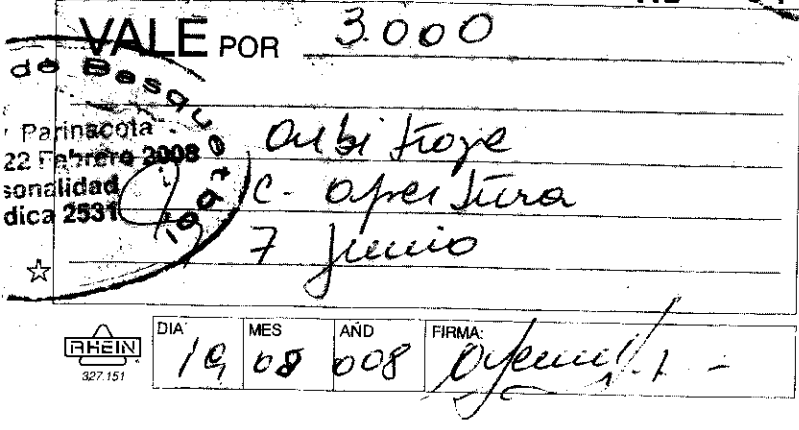 VALE POR 3.000
de Basquetbol
Parinacota
22 Febrero 2008
sonalidad
dica 2531
Arbitraje
C. apertura
7 junio
RHEIN
327.151
DIA MES AÑO FIRMA:
19 08 008